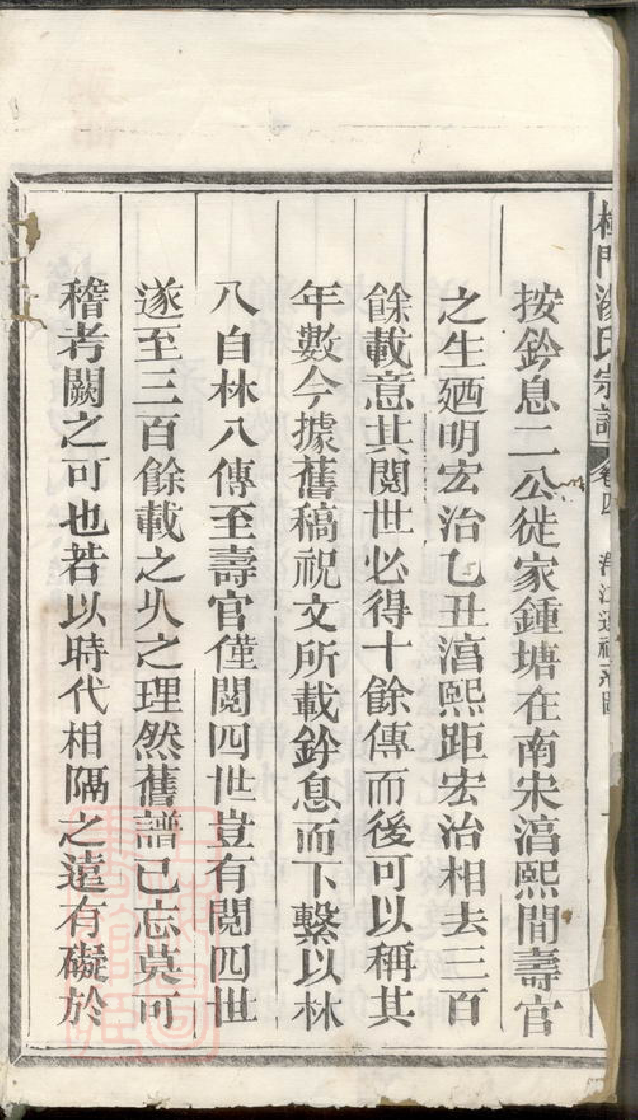 門湯氏宗譜 卷四
按鈐息二公徙家鍾塘在南宋湻熙間壽官
之生廼明宏治乙丑湻熙距宏治相去三百
餘載意其閱世必得十餘傳而後可以稱其
年數今據舊稿祝文所載鈐息而下繫以林
八自林八傳至壽官僅閱四世豈有閱四世
遂至三百餘載之乆之理然舊譜已忘莫可
稽考闕之可也若以時代相隔之遠有礙於